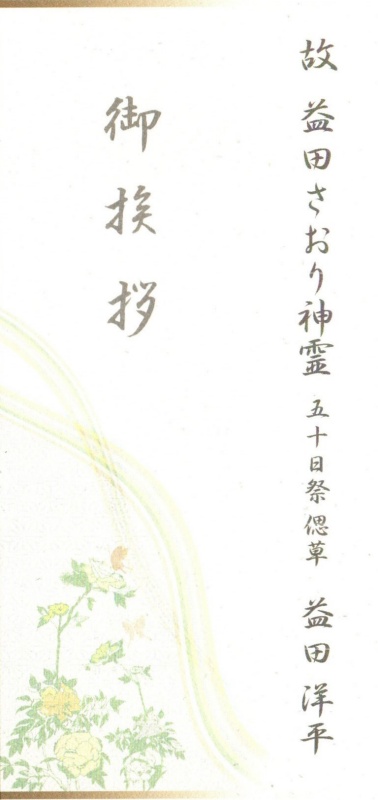 故 益田さおり神霊 五十日祭偲草 益田洋平
御挨拶